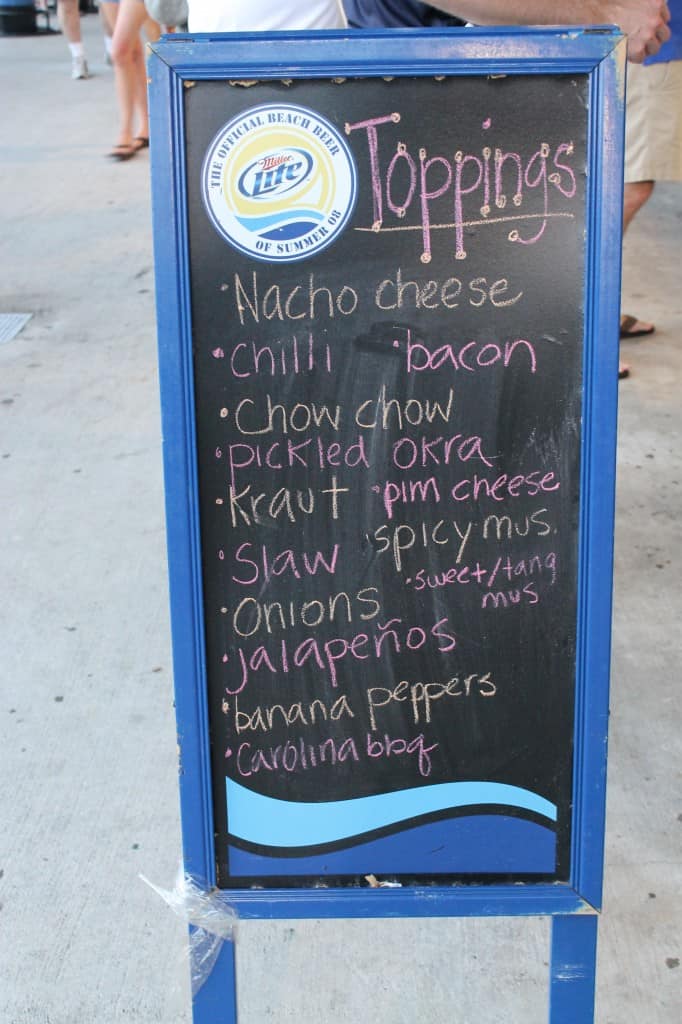 THE OFFICIAL BEACH BEER
Miller
Lite
OF SUMMER 08
Toppings
·Nacho cheese
·Chilli ·bacon
·Chow chow
·pickled okra
·Kraut ·pim cheese
·spicy mus.
·Slaw
·sweet/tang
mus
·Onions
·jalapeños
·banana peppers
·Carolina bbq